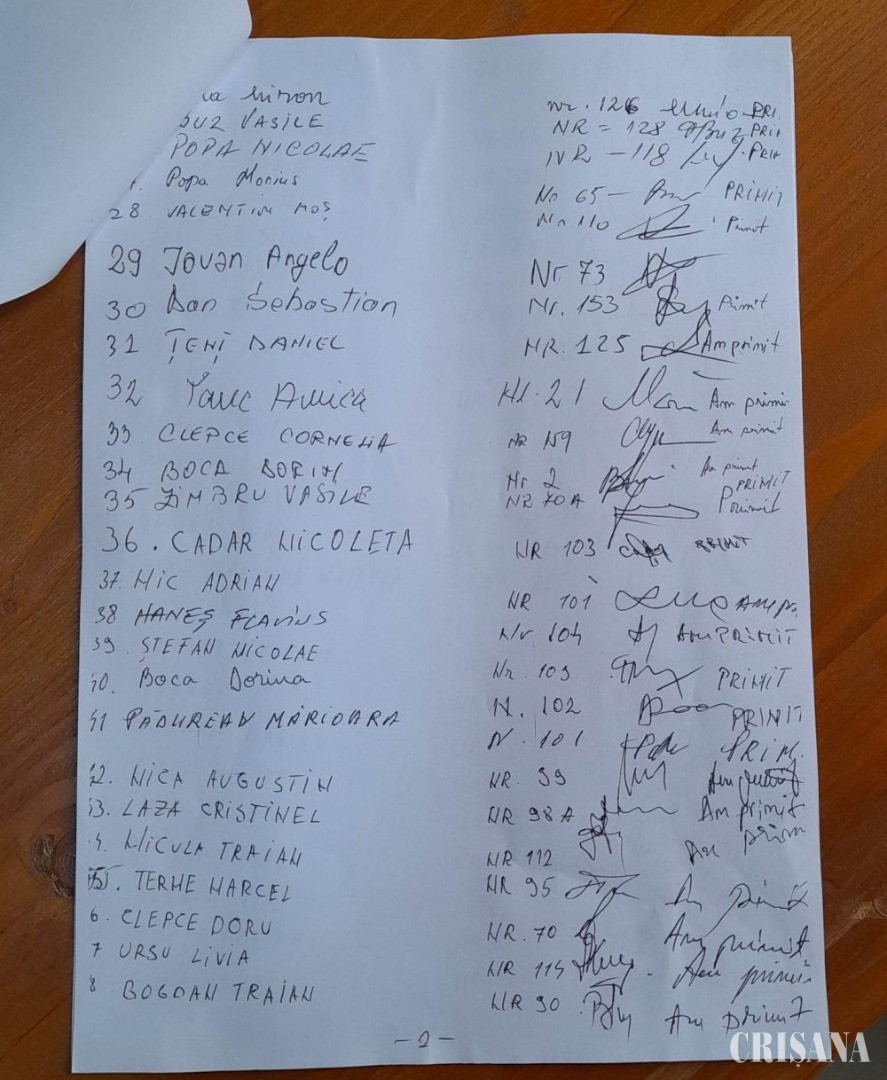 Miron nr. 126 PRI.
BUZ VASILE NR = 128 PRI
POPA NICOLAE NR - 118 PRI
Popa Marius Nr 65 - PRIMIT
28. VALENTIN MOȘ Nr 110 Primit
29 Iovan Angelo Nr 73
30 Dan Sebastian Nr. 153 Primit
31 ȚENȚ DANIEL NR. 125 Am primit
32 Anica Nr. 21 Am primi
33. CLEPCE CORNELIA NR 159 Am primit
34 BOCA DORIN Nr 2 Am primit
35 ZIMBRU VASILE NR 70A PRIMIT Primit
36. CADAR NICOLETA NR 103 PRIMIT
37. MIC ADRIAN
38 HANEȘ FLAVIUS NR 101 AM PR.
39. ȘTEFAN NICOLAE Nr 104 AM PRIMIT
40. Boca Dorina Nr. 103 PRIMIT
41 PĂDUREAN MĂRIOARA N. 102 PRIMIT
N. 101 PRIM.
42. MICA AUGUSTIN NR. 99
43. LAZA CRISTINEL NR 98 A Am primit
4. MICULA TRAIAN NR 112 Am prim
45. TERHE MARCEL NR 95 Am primit
6. CLEPCE DORU NR. 70 Am primit
7 URSU LIVIA NR 114 Am primit
8 BOGDAN TRAIAN NR 90 Am primit
- 2 -
CRIȘANA